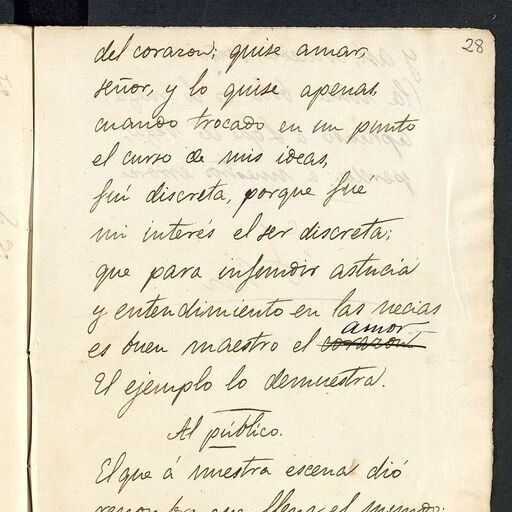 28
del corazon; quise amar,
señor, y lo quise apenas
cuando trocado en un punto
el curso de mis ideas,
fuí discreta, porque fué
mi interés el ser discreta;
que para infundir astucia
y entendimiento en las necias
es buen maestro el corazon amor
El ejemplo lo demuestra.
Al público.
El que á nuestra escena dió
renombre que llena el mundo;